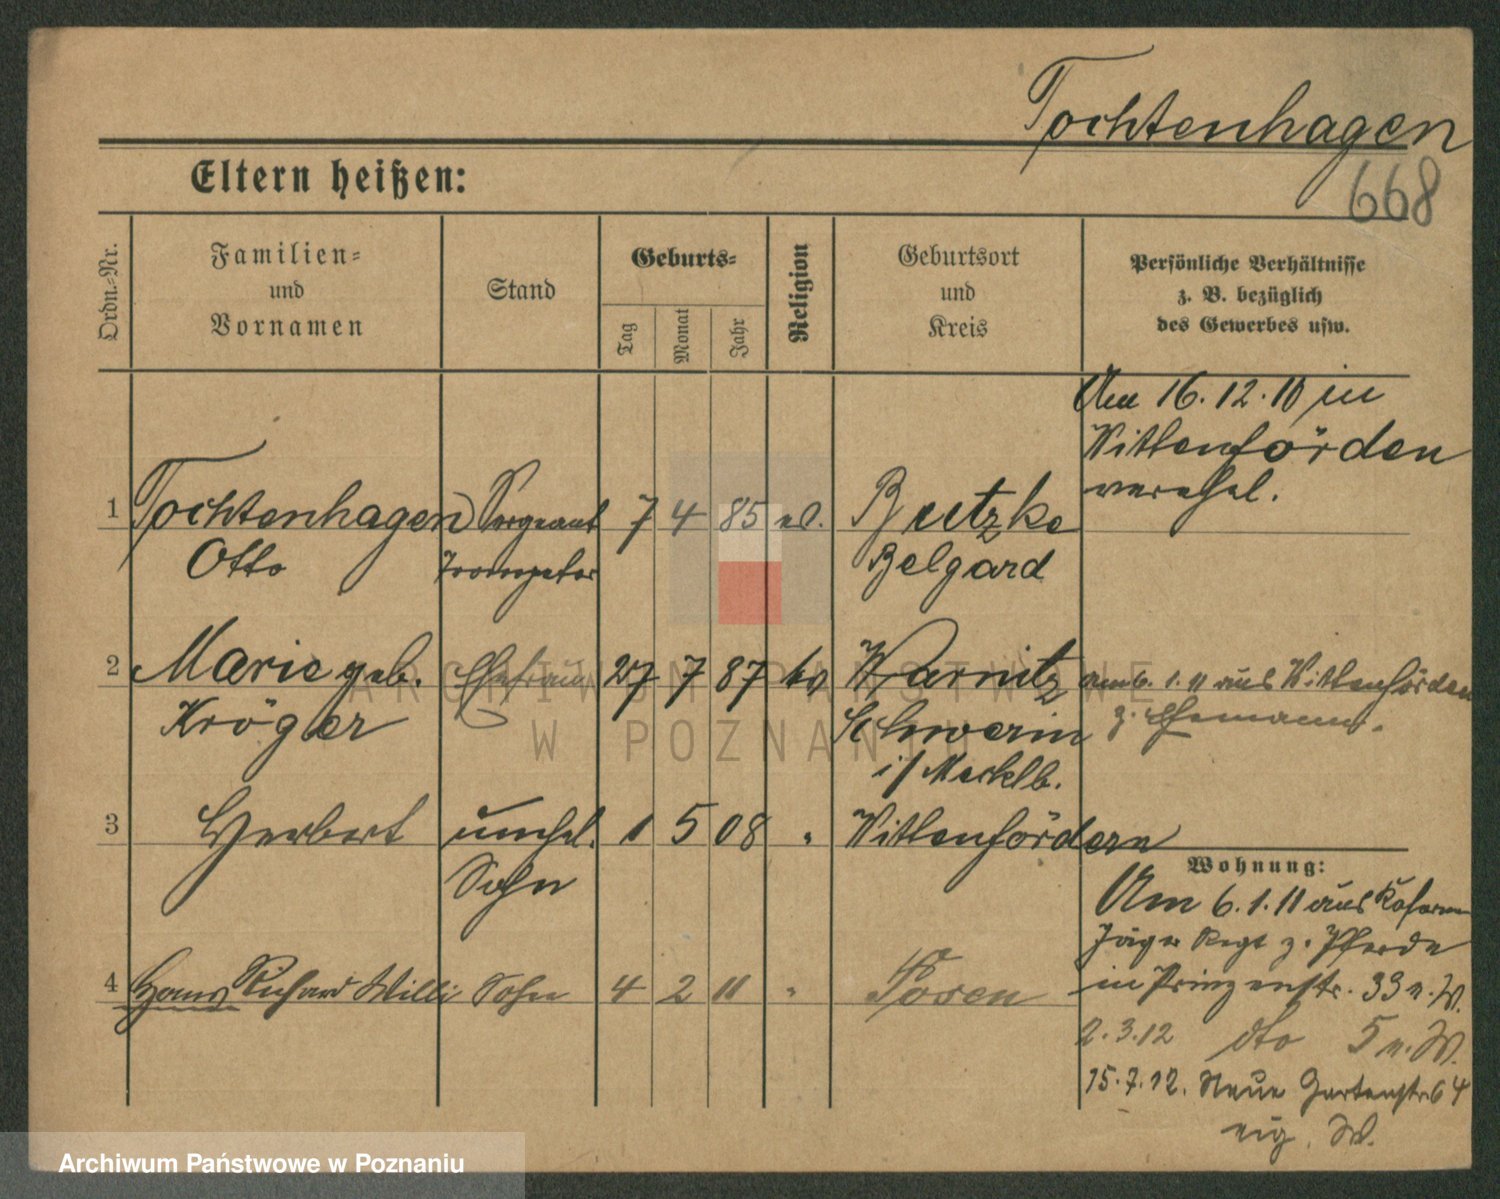 Tochtenhagen
668
Eltern heißen:
Ordn.-Nr.
Familien-
und
Vornamen
Stand
Geburts-
Tag
Monat
Jahr
Religion
Geburtsort
und
Kreis
Persönliche Verhältnisse
z. B. bezüglich
des Gewerbes usw.
Am 16.12.10 in
Wittenförden
verehel.
1 Tochtenhagen Sergeant 7 4 85 ev. Butzke
Otto Trompeter Belgard
2 Marie geb. Ehefrau 27 7 87 ev Warnitz am 6.1.11 aus Wittenförden
Kröger Schwerin z. Ehemann.
i/Mecklb.
3 Herbert unehel. 1 5 08 " Wittenförden
Sohn
Wohnung:
Am 6.1.11 aus
Jäger Regt z. Pferde
4 Hans Richard Willi Sohn 4 2 11 " Posen
in Prinzenstr. 33 n. W.
2.3.12 dto 5 n. W.
15.7.12. Neue Gartenstr. 64
eig. W.
ARCHIWUM PAŃSTWOWE
W POZNANIU
Archiwum Państwowe w Poznaniu